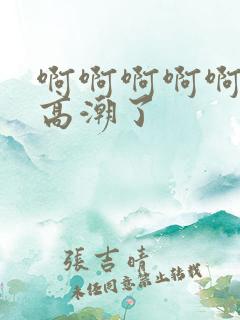 啊啊啊啊啊
高潮了
張吉晴
未经同意禁止转载